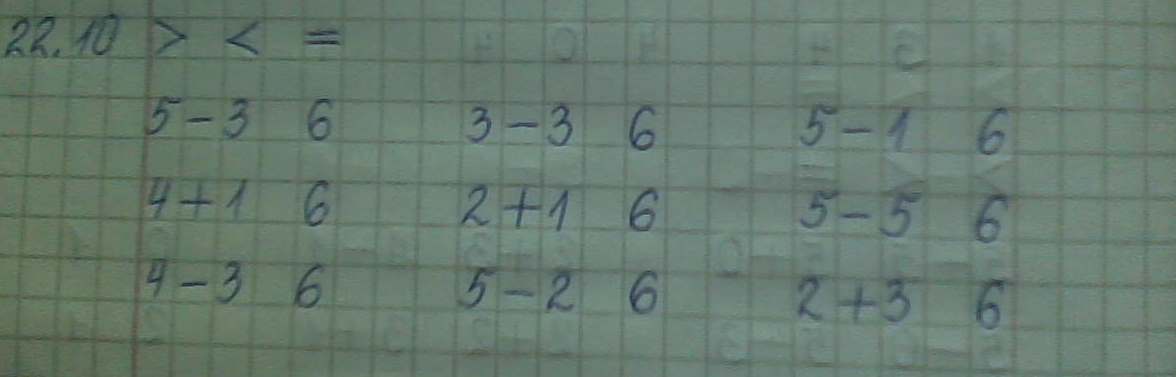 22.10 > < =
5-3 6 3-3 6 5-1 6
4+1 6 2+1 6 5-5 6
4-3 6 5-2 6 2+3 6